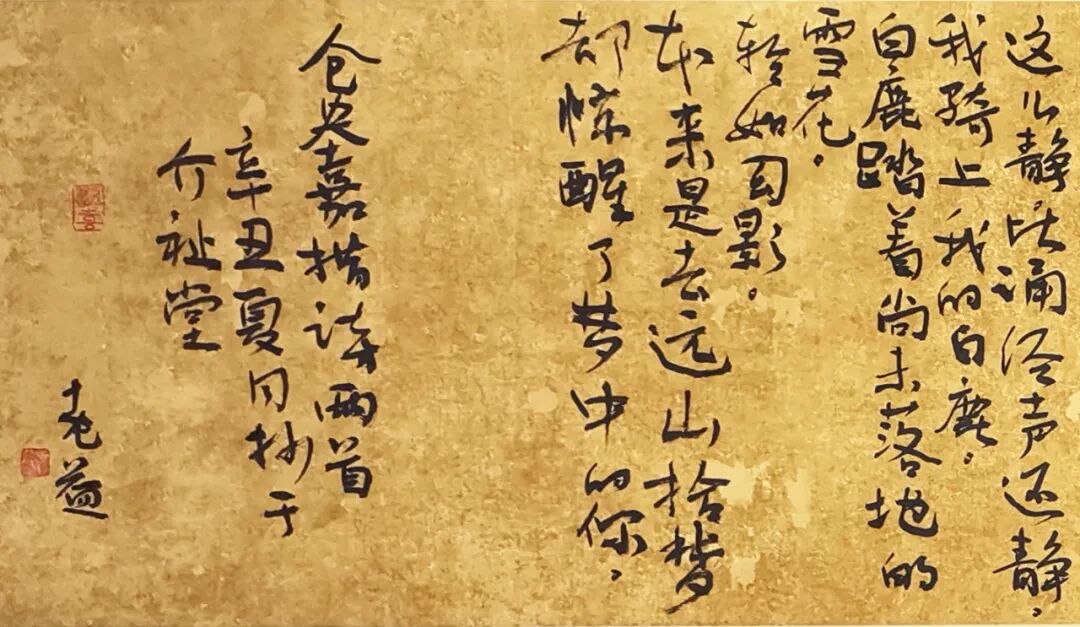 这么静比诵经声还静。
我骑上我的白鹿。
白鹿踏着尚未落地的
雪花。
轻如幻影。
本来是去远山拾梦
却惊醒了梦中的你。
仓央嘉措诗两首
辛丑夏日抄于
介祉堂